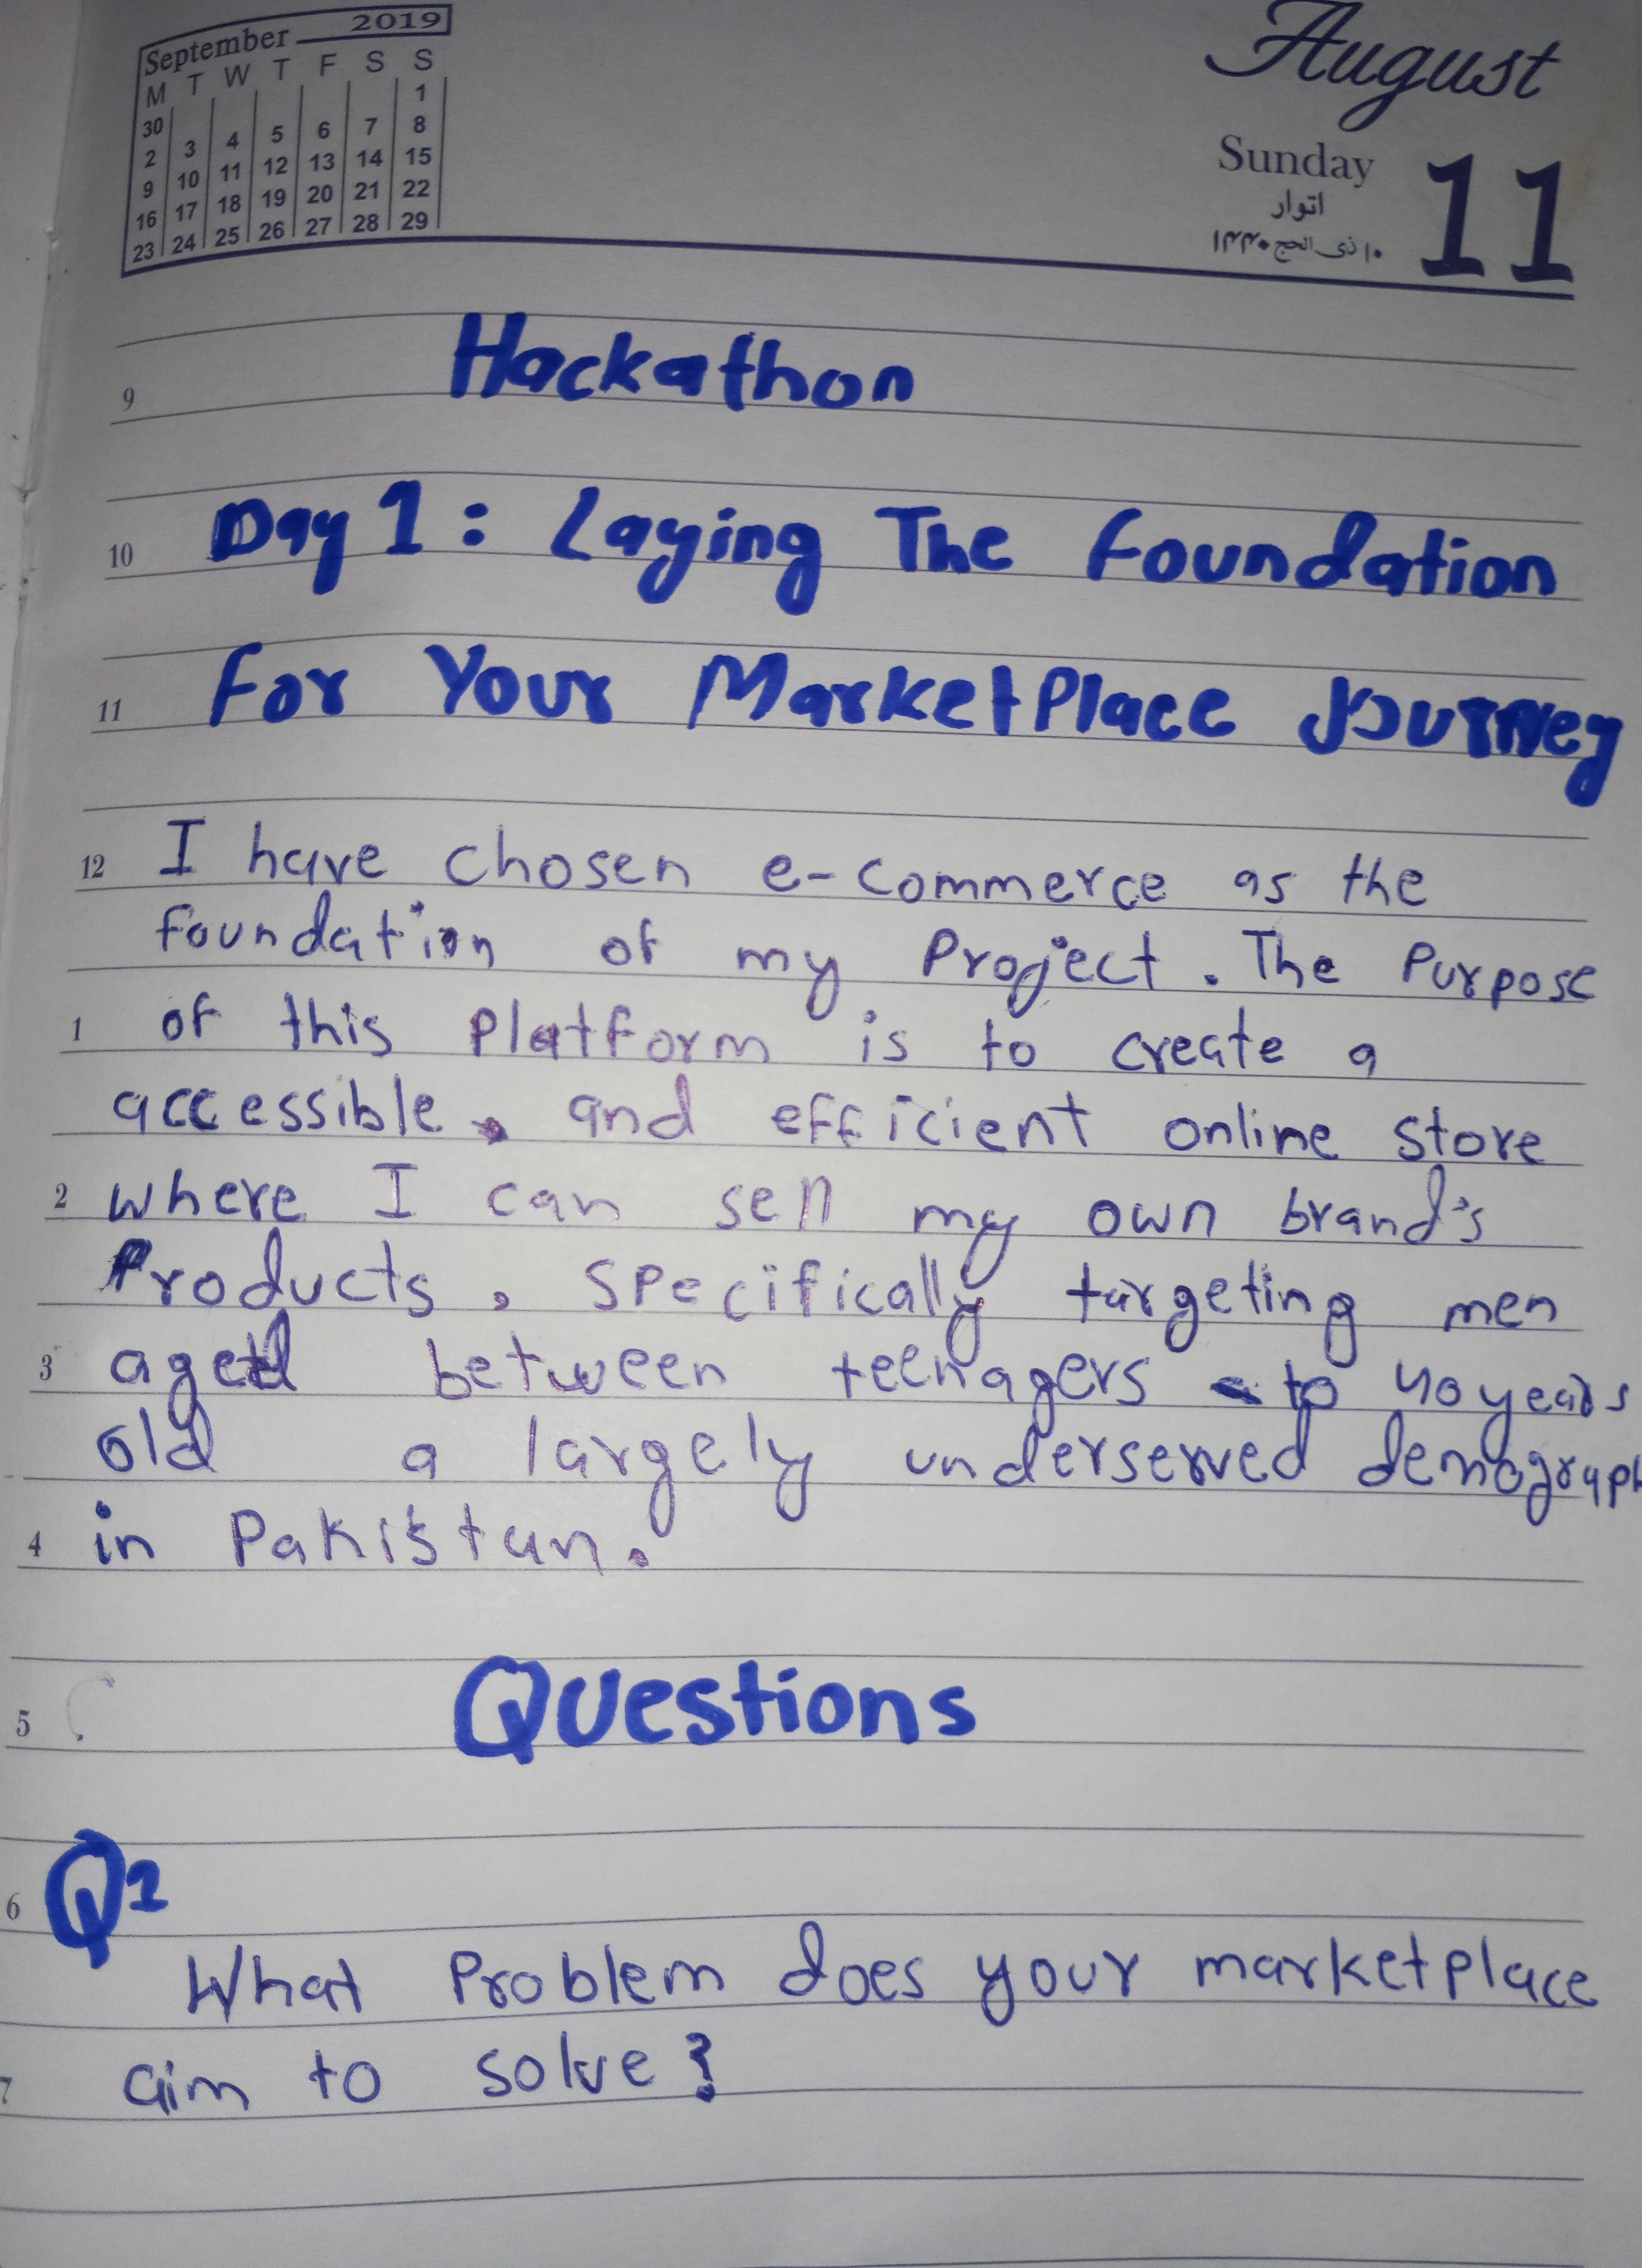 September 2019
M T W T F S S
30 1
2 3 4 5 6 7 8
9 10 11 12 13 14 15
16 17 18 19 20 21 22
23 24 25 26 27 28 29
August
Sunday 11
اتوار
۱۰ ذی الحج ۱۴۴۰
9 Hackathon
10 Day 1 : Laying The Foundation
11 For Your MarketPlace Journey
12 I have chosen e-commerce as the
foundation of my Project. The Purpose
1 of this Platform is to create a
accessible, and efficient online store
2 where I can sell my own brand's
Products, specifically targeting men
3 aged between teenagers to 40 years
old a largely underserved demograph
4 in Pakistan.
5 Questions
6 Q1
What Problem does your marketplace
7 aim to solve?